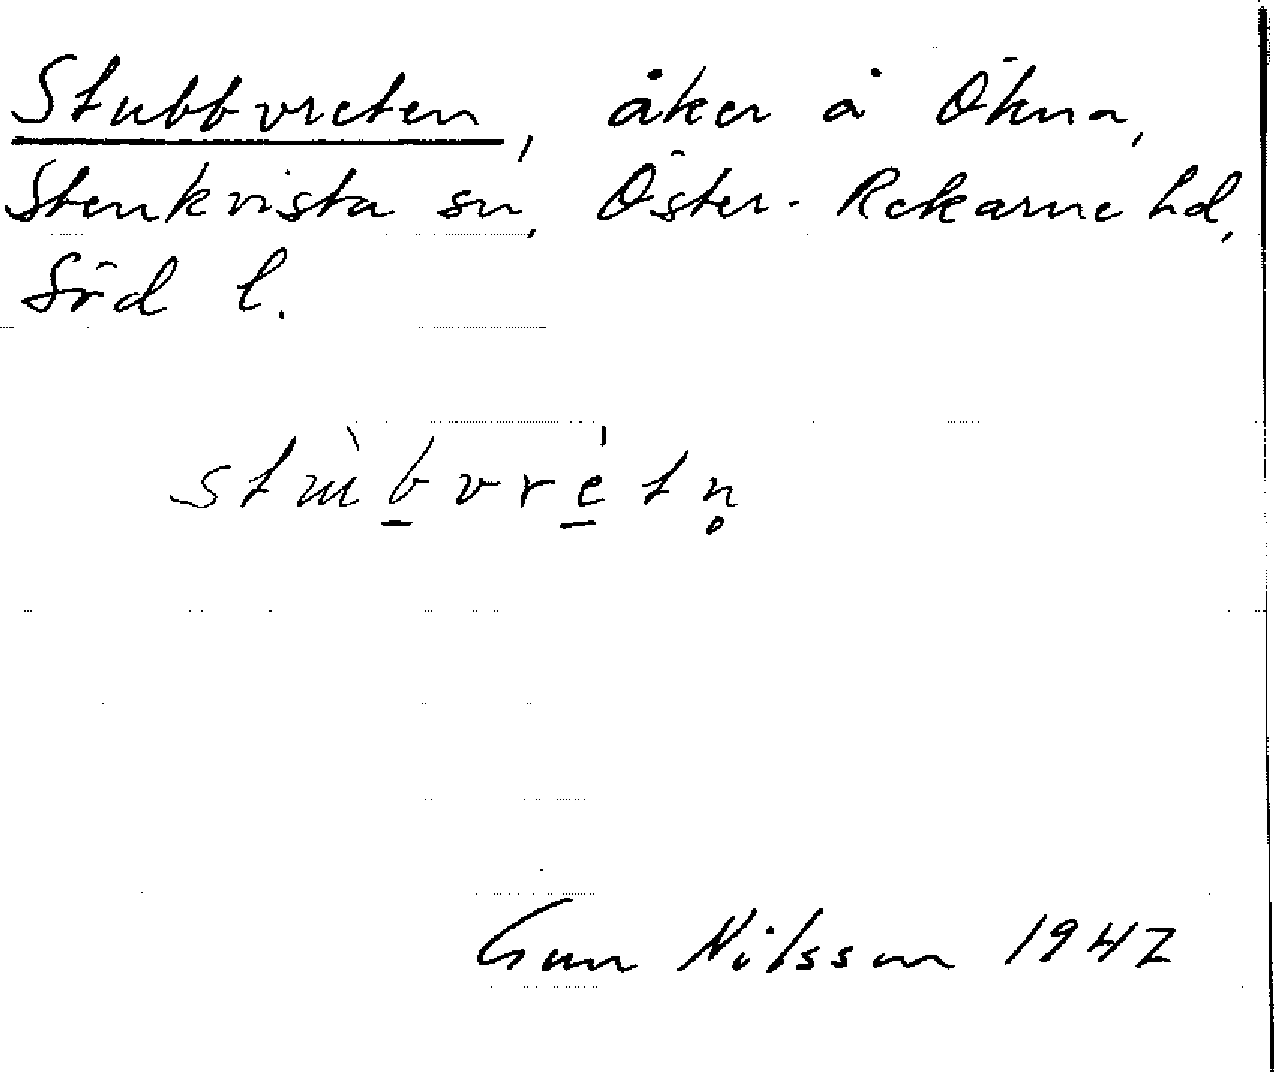 Stubbvreten, åker å Ökna,
Stenkvista sn, Öster-Rekarne hd,
Söd l.
Gun Nilsson 1947